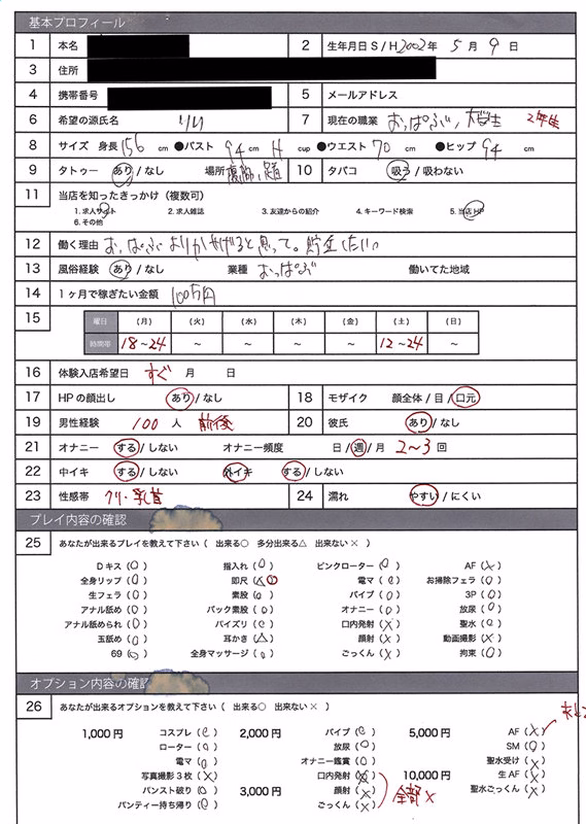 基本プロフィール
1 本名 2 生年月日 S / H 2002年 5月 9日
3 住所
4 携帯番号 5 メールアドレス
6 希望の源氏名 りり 7 現在の職業 おっぱぶ, 大学生 2年生
8 サイズ 身長 156 cm ●バスト 94 cm H cup ●ウエスト 70 cm ●ヒップ 94 cm
9 タトゥー あり / なし 場所 10 タバコ 吸う / 吸わない
11 当店を知ったきっかけ(複数可)
1. 求人サイト 2. 求人雑誌 3. 友達からの紹介 4. キーワード検索 5. 当店HP
6. その他
12 働く理由 おっぱぶよりかせげると思って。貯金したい
13 風俗経験 あり / なし 業種 おっぱぶ 働いてた地域
14 1ヶ月で稼ぎたい金額 100万円
15 曜日 (月) (火) (水) (木) (金) (土) (日)
時間帯 18~24 ~ ~ ~ ~ 12~24 ~
16 体験入店希望日 すぐ 月 日
17 HPの顔出し あり / なし 18 モザイク 顔全体 / 目 / 口元
19 男性経験 100 人 前後 20 彼氏 あり / なし
21 オナニー する / しない オナニー頻度 日 / 週 / 月 2~3 回
22 中イキ する / しない 外イキ する / しない
23 性感帯 クリ・乳首 24 濡れ やすい / にくい
プレイ内容の確認
25 あなたが出来るプレイを教えて下さい ( 出来る○ 多分出来る△ 出来ない× )
Dキス (○) 指入れ (○) ピンクローター (○) AF (×)
全身リップ (○) 即尺 (△○) 電マ (○) お掃除フェラ (○)
生フェラ (○) 素股 (○) バイブ (○) 3P (○)
アナル舐め (○) バック素股 (○) オナニー (○) 放尿 (○)
アナル舐められ (○) パイズリ (○) 口内発射 (×) 聖水 (○)
玉舐め (○) 耳かき (△) 顔射 (×) 動画撮影 (×)
69 (○) 全身マッサージ (○) ごっくん (×) 拘束 (○)
オプション内容の確認
26 あなたが出来るオプションを教えて下さい ( 出来る○ 出来ない× )
1,000円 コスプレ (○) 2,000円 バイブ (○) 5,000円 AF (×)
ローター (○) 放尿 (○) SM (○)
電マ (○) オナニー鑑賞 (○) 聖水受け (×)
写真撮影3枚 (×) 口内発射 (×) 10,000円 生AF (×)
パンスト破り (○) 3,000円 顔射 (×) 聖水ごっくん (×)
パンティー持ち帰り (○) ごっくん (×) 全部×